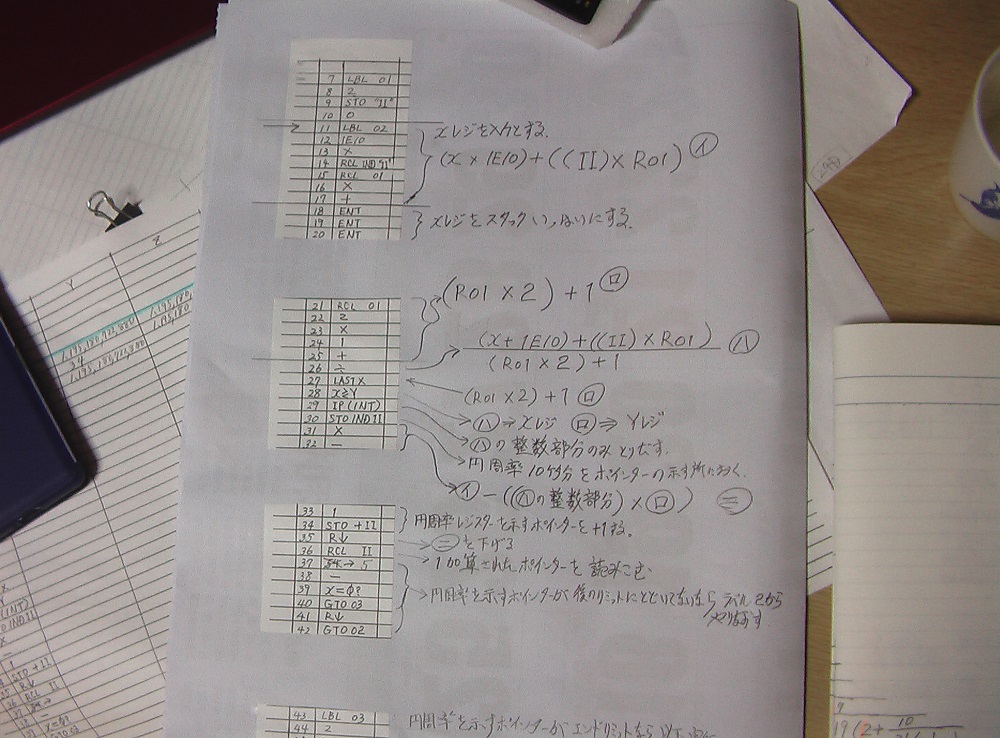 7 LBL 01
8 2
9 STO "II"
10 0
11 LBL 02
12 1E10
13 X
14 RCL IND "I"
15 RCL 01
16 X
17 +
18 ENT
19 ENT
20 ENT
xレジを入力とする.
(x × 1E10) + ((II) × R01) イ
xレジをスタックいっぱいにする.
21 RCL 01
22 2
23 X
24 1
25 +
26 ÷
27 LAST X
28 X≷Y
29 IP (INT)
30 STO IND II
31 X
32 —
(R01 × 2) + 1 ロ
(x + 1E10) + ((II) × R01)
(R01 × 2) + 1
ハ
(R01 × 2) + 1 ロ
ハ ⇒ Xレジ ロ ⇒ Yレジ
ハの整数部分のみとりだす.
円周率10ケタ分をポインターの示す所におく.
イ — ((ハの整数部分) × ロ) ニ
33 1
34 STO + II
35 R↓
36 RCL II
37 → 5
38 —
39 X=0?
40 GTO 03
41 R↓
42 GTO 02
円周率レジスターを示すポインターを+1する.
ニを下げる
1加算されたポインターを読みこむ
円周率を示すポインターが後のリミットにとどいてないなら ラベル2から
やりなおす
43 LBL 03
44 2
円周率を示すポインターがエンドリミットなら以下
Y
Z
1,195,180
34
X
STO + II
R↓
RCL II
X=0?
GTO 03
19 (2 + 10